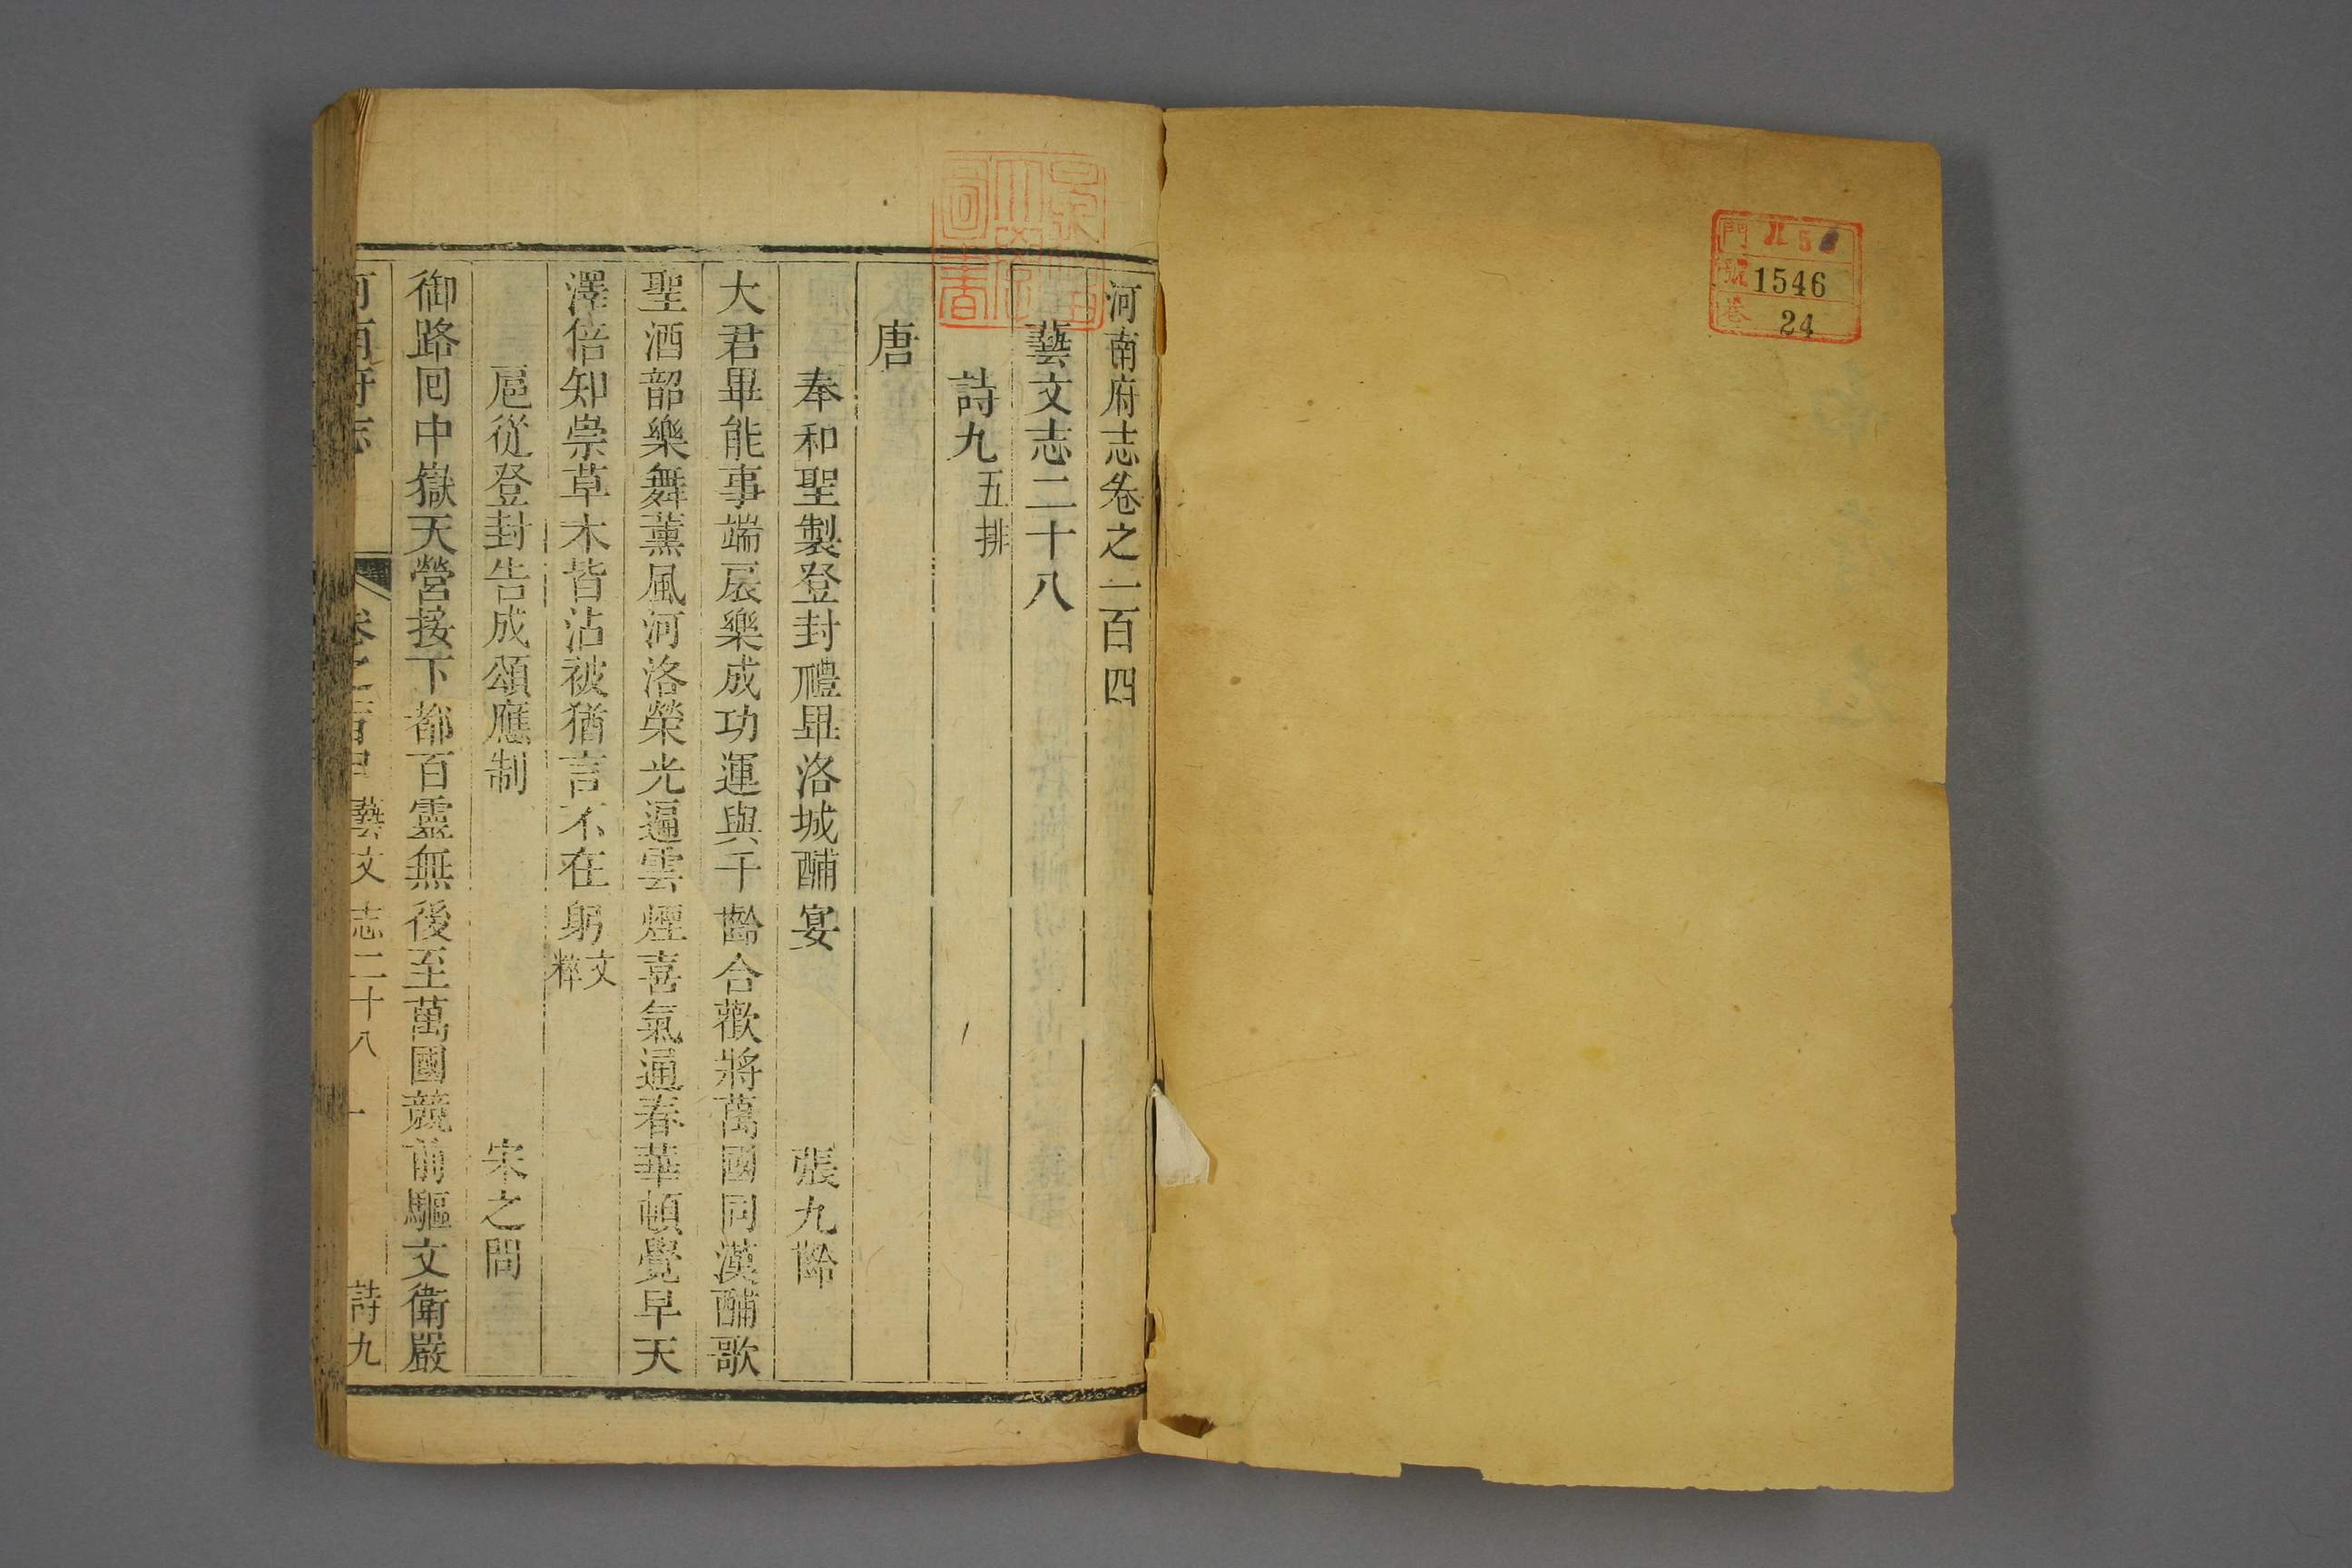 1546
24
河南府志卷之一百四
藝文志二十八
詩九五排
唐
奉和聖製登封禮畢洛城酺宴 張九齡
大君畢能事端扆樂成功運與千齡合歡將萬國同漢酺歌
聖酒韶樂舞薰風河洛榮光遍雲煙喜氣通春華頓覺早天
澤倍知崇草木皆沾被猶言不在躬文粹
扈從登封告成頌應制 宋之問
御路回中嶽天營接下都百靈無後至萬國競前驅文衛嚴
河南府志 卷之一百四 藝文志二十八 一 詩九